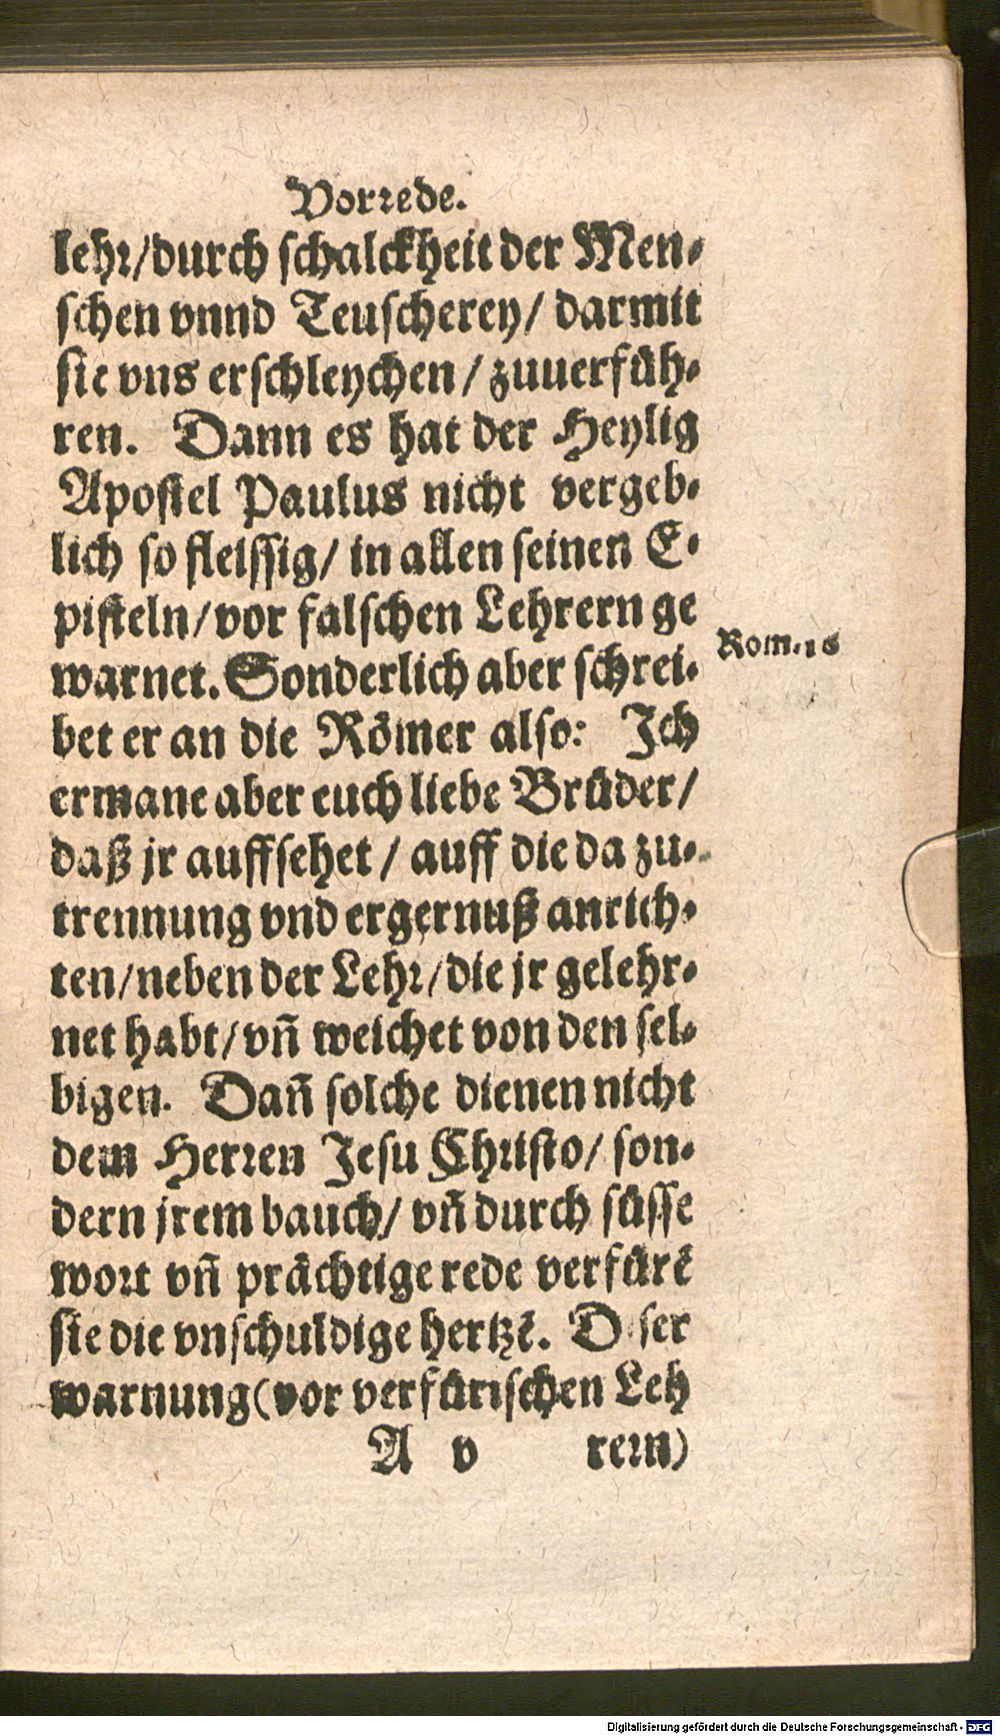 Vorrede.
lehr/durch schalckheit der Men-
schen vnnd Teuscherey/ darmit
sie vns erschleychen / zuuerfüh-
ren. Dann es hat der Heylig
Apostel Paulus nicht vergeb-
lich so fleissig/ in allen seinen E-
pisteln/vor falschen Lehrern ge
warnet. Sonderlich aber schrei-
bet er an die Römer also: Jch
Rom.16
ermane aber euch liebe Brüder/
daß jr auffsehet / auff die da zu-
trennung vnd ergernuß anrich-
ten/neben der Lehr/die jr gelehr-
net habt/vñ weichet von den sel-
bigen. Dañ solche dienen nicht
dem Herren Jesu Christo/ son-
dern jrem bauch/ vñ durch süsse
wort vñ prächtige rede verfürē
sie die vnschuldige hertzē. D ser
warnung(vor verfürischen Leh
A v rern)
Digitalisierung gefördert durch die Deutsche Forschungsgemeinschaft - DFG